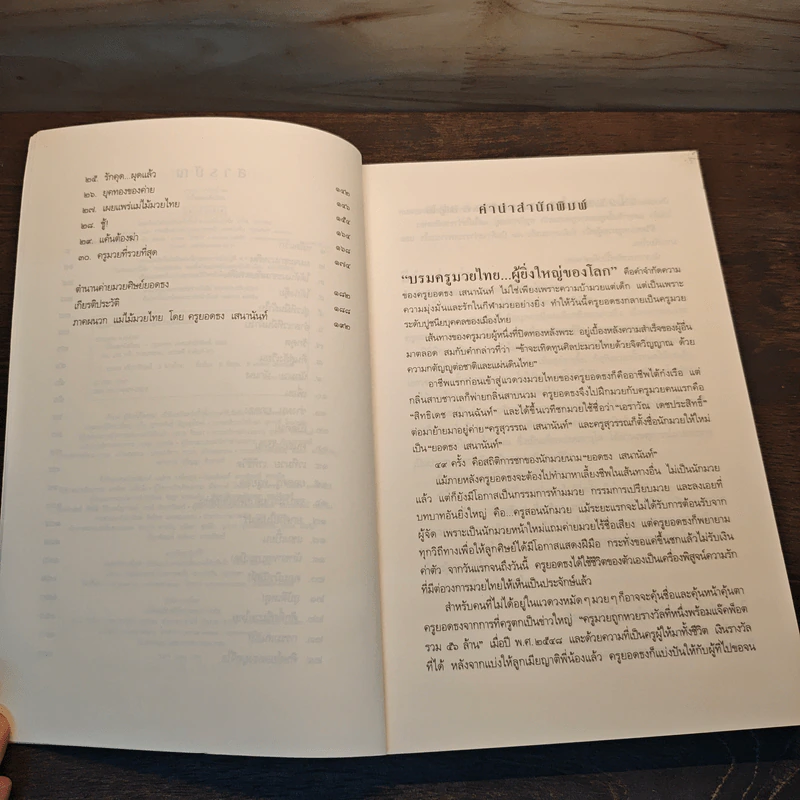 ๒๕. รักดุด...ผุดแล้ว
๒๖. ยุคทองของค่าย ๑๔๒
๒๗. เผยแพร่แม่ไม้มวยไทย ๑๔๖
๒๘. ชู้! ๑๕๔
๒๙. แค้นต้องฆ่า ๑๖๔
๓๐. ครูมวยที่รวยที่สุด ๑๖๘
๑๗๔
ตำนานค่ายมวยศิษย์ยอดธง ๑๘๒
เกียรติประวัติ ๑๘๘
ภาคผนวก แม่ไม้มวยไทย โดย ครูยอดธง เสนานันท์ ๑๙๒
คำนำสำนักพิมพ์
“บรมครูมวยไทย...ผู้ยิ่งใหญ่ของโลก” คือคำจำกัดความ
ของครูยอดธง เสนานันท์ ไม่ใช่เพียงเพราะความบ้ามวยแต่เด็ก แต่เป็นเพราะ
ความมุ่งมั่นและรักในกีฬามวยอย่างยิ่ง ทำให้วันนี้ครูยอดธงกลายเป็นครูมวย
ระดับปูชนียบุคคลของเมืองไทย
เส้นทางของครูมวยผู้หนึ่งที่ปิดทองหลังพระ อยู่เบื้องหลังความสำเร็จของผู้อื่น
มาตลอด สมกับคำกล่าวที่ว่า “ข้าจะเทิดทูนศิลปะมวยไทยด้วยจิตวิญญาณ ด้วย
ความกตัญญูต่อชาติและแผ่นดินไทย”
อาชีพแรกก่อนเข้าสู่แวดวงมวยไทยของครูยอดธงก็คืออาชีพได้กังเรือ แต่
กลิ่นสาบชาวเลก็พ่ายกลิ่นสาบนวม ครูยอดธงจึงไปฝึกมวยกับครูมวยคนแรกคือ
“สิทธิเดช สมานฉันท์” และได้ขึ้นเวทีชกมวยใช้ชื่อว่า “เอราวัณ เดชประสิทธิ์”
ต่อมาย้ายมาอยู่ค่าย “ครูสุวรรณ เสนานันท์” และครูสุวรรณก็ตั้งชื่อนักมวยให้ใหม่
เป็น “ยอดธง เสนานันท์”
๔๙ ครั้ง คือสถิติการชกของนักมวยนาม “ยอดธง เสนานันท์”
แม้ภายหลังครูยอดธงจะต้องไปทำมาหาเลี้ยงชีพในเส้นทางอื่น ไม่เป็นนักมวย
แล้ว แต่ก็ยังมีโอกาสเป็นกรรมการห้ามมวย กรรมการเปรียบมวย และลงเอยที่
บทบาทอันยิ่งใหญ่ คือ...ครูสอนนักมวย แม้ระยะแรกจะไม่ได้รับการต้อนรับจาก
ผู้จัด เพราะเป็นนักมวยหน้าใหม่แถมค่ายมวยไร้ชื่อเสียง แต่ครูยอดธงก็พยายาม
ทุกวิถีทางเพื่อให้ลูกศิษย์ได้มีโอกาสแสดงฝีมือ กระทั่งขอแค่ขึ้นชกแล้วไม่รับเงิน
ค่าตัว จากวันแรกจนถึงวันนี้ ครูยอดธงได้ใช้ชีวิตของตัวเองเป็นเครื่องพิสูจน์ความรัก
ที่มีต่อวงการมวยไทยให้เห็นเป็นประจักษ์แล้ว
สำหรับคนที่ไม่ได้อยู่ในแวดวงหมัดๆ มวยๆ ก็อาจจะคุ้นชื่อและคุ้นหน้าคุ้นตา
ครูยอดธงจากการที่ครูตกเป็นข่าวใหญ่ “ครูมวยถูกหวยรางวัลที่หนึ่งพร้อมแจ็คพ็อต
รวม ๕๖ ล้าน” เมื่อปี พ.ศ. ๒๕๔๘ และด้วยความที่เป็นครูผู้ให้มาทั้งชีวิต เงินรางวัล
ที่ได้ หลังจากแบ่งให้ลูกเมียญาติพี่น้องแล้ว ครูยอดธงก็แบ่งปันให้กับผู้ที่ไปขอจน